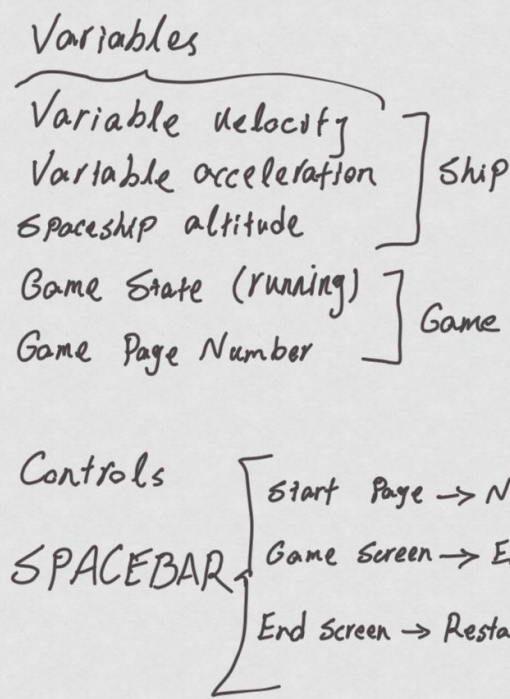 Variables
Variable velocity
Variable acceleration
Ship
Spaceship altitude
Game State (running)
Game
Game Page Number
Controls
Start Page → N
SPACEBAR
Game Screen → E
End Screen → Resta